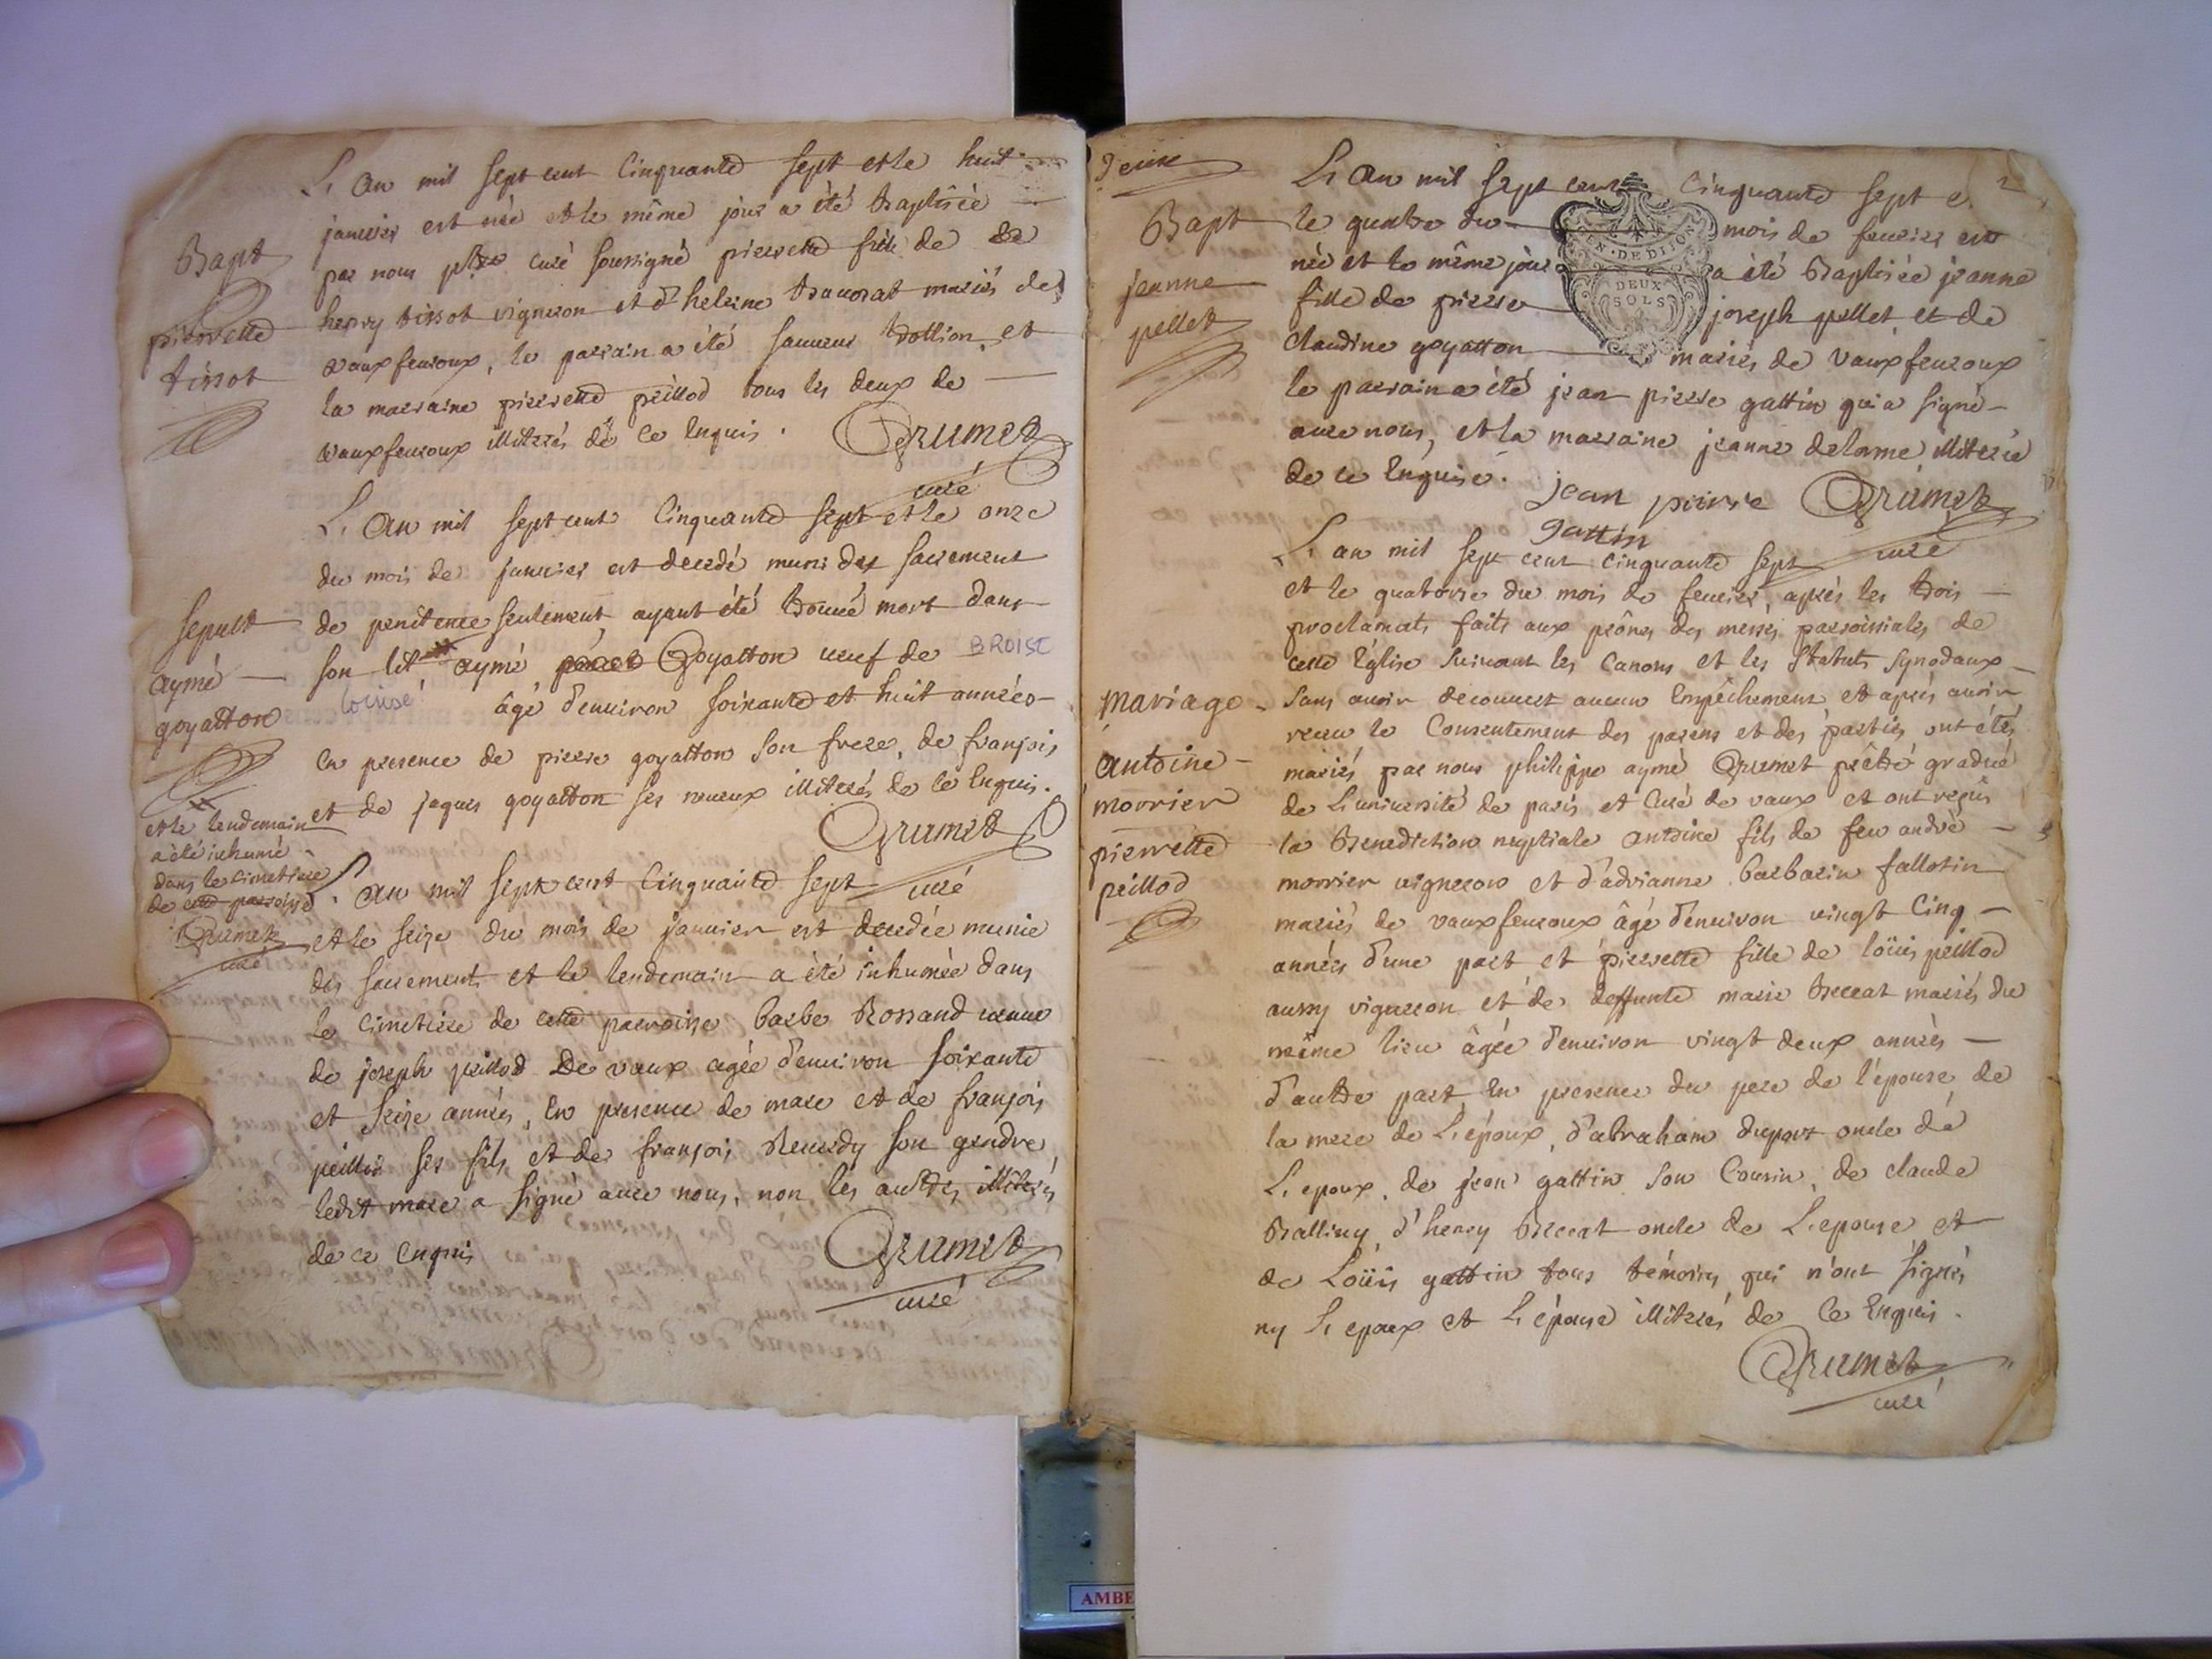 L'an mil sept cent Cinquante sept et le huit
janvier est née et le même jour a été Baptisée
par nous curé soussigné pierrette fille de
henry tissot vigneron et d'helene mariés de
vauxfevroux, le parrain a été et
la marraine pierrette peillod tous les deux de
vauxfevroux illiterés de ce Enquis.
Grumet
curé
Bapt
pierrette
tissot
L'an mil sept cent Cinquante sept et le onze
du mois de janvier est decedé muni des sacrement
de penitence seulement, ayant été trouvé mort dans
son lit aymé Goyatton veuf de BROISE
loüise âgé d'environ soixante et huit années
En presence de pierre goyatton son frere, de françois
et de jaques goyatton ses neveux illiterés de ce Enquis.
Grumet
curé
sepult
aymé
goyatton
et le lendemain
a été inhumé
dans le cimetiere
de cette parroisse
Grumet
curé
L'an mil sept cent Cinquante sept
et le seize du mois de janvier est decedée munie
des sacrements et le lendemain a été inhumée dans
le cimetiere de cette parroisse barbe Rossand veuve
de joseph peillod De vaux agée d'environ soixante
et seize années, En presence de marc et de françois
peillod ses fils et de françois son gendre
ledit marc a signé avec nous, non les autres illiterés
de ce Enquis
Grumet
curé
2
L'an mil sept cent Cinquante sept et
le quatre du mois de fevrier est
née et le même jour a été Baptisée jeanne
fille de pierre joseph pellet et de
claudine goyatton mariés de vauxfevroux
le parrain a été jean pierre gattin qui a signé
avec nous, et la marraine jeanne delorme illiterée
de ce Enquise.
GEN. DE DIJON
DEUX
SOLS
jean pierre
gattin
Grumet
curé
Bapt
jeanne
pellet
L'an mil sept cent Cinquante sept
et le quatorze du mois de fevrier, après les trois
proclamats faits aux prônes des messes parroissiales de
cette Eglise suivant les Canons et les statuts synodaux
sans avoir decouvert aucun Empêchement et après avoir
receu le Consentement des parens et des parties, ont étés
mariés par nous philippe aymé Grumet prêtre gradué
de L'université de paris et Curé de vaux et ont reçus
la Benediction nuptiale antoine fils de feu andré
morrier vigneron et d'adrianne barbarin fallotin
mariés de vauxfevroux âgé d'environ vingt Cinq
années d'une part et pierrette fille de loüis peillod
aussy vigneron et de deffunte marie Breccat mariés du
même lieu âgée d'environ vingt deux années
d'autre part, En presence du pere de l'épouse de
la mere de L'époux, d'abraham dupont oncle de
L'epoux, de jean gattin son Cousin, de claude
Balliny, d'henry Breccat oncle de L'epouse, et
de Loüis gattin tous témoins qui n'ont signés
ny L'epoux et L'épouse illiterés de Ce Enquis.
Grumet
curé
mariage
antoine
morrier
pierrette
peillod
AMBE